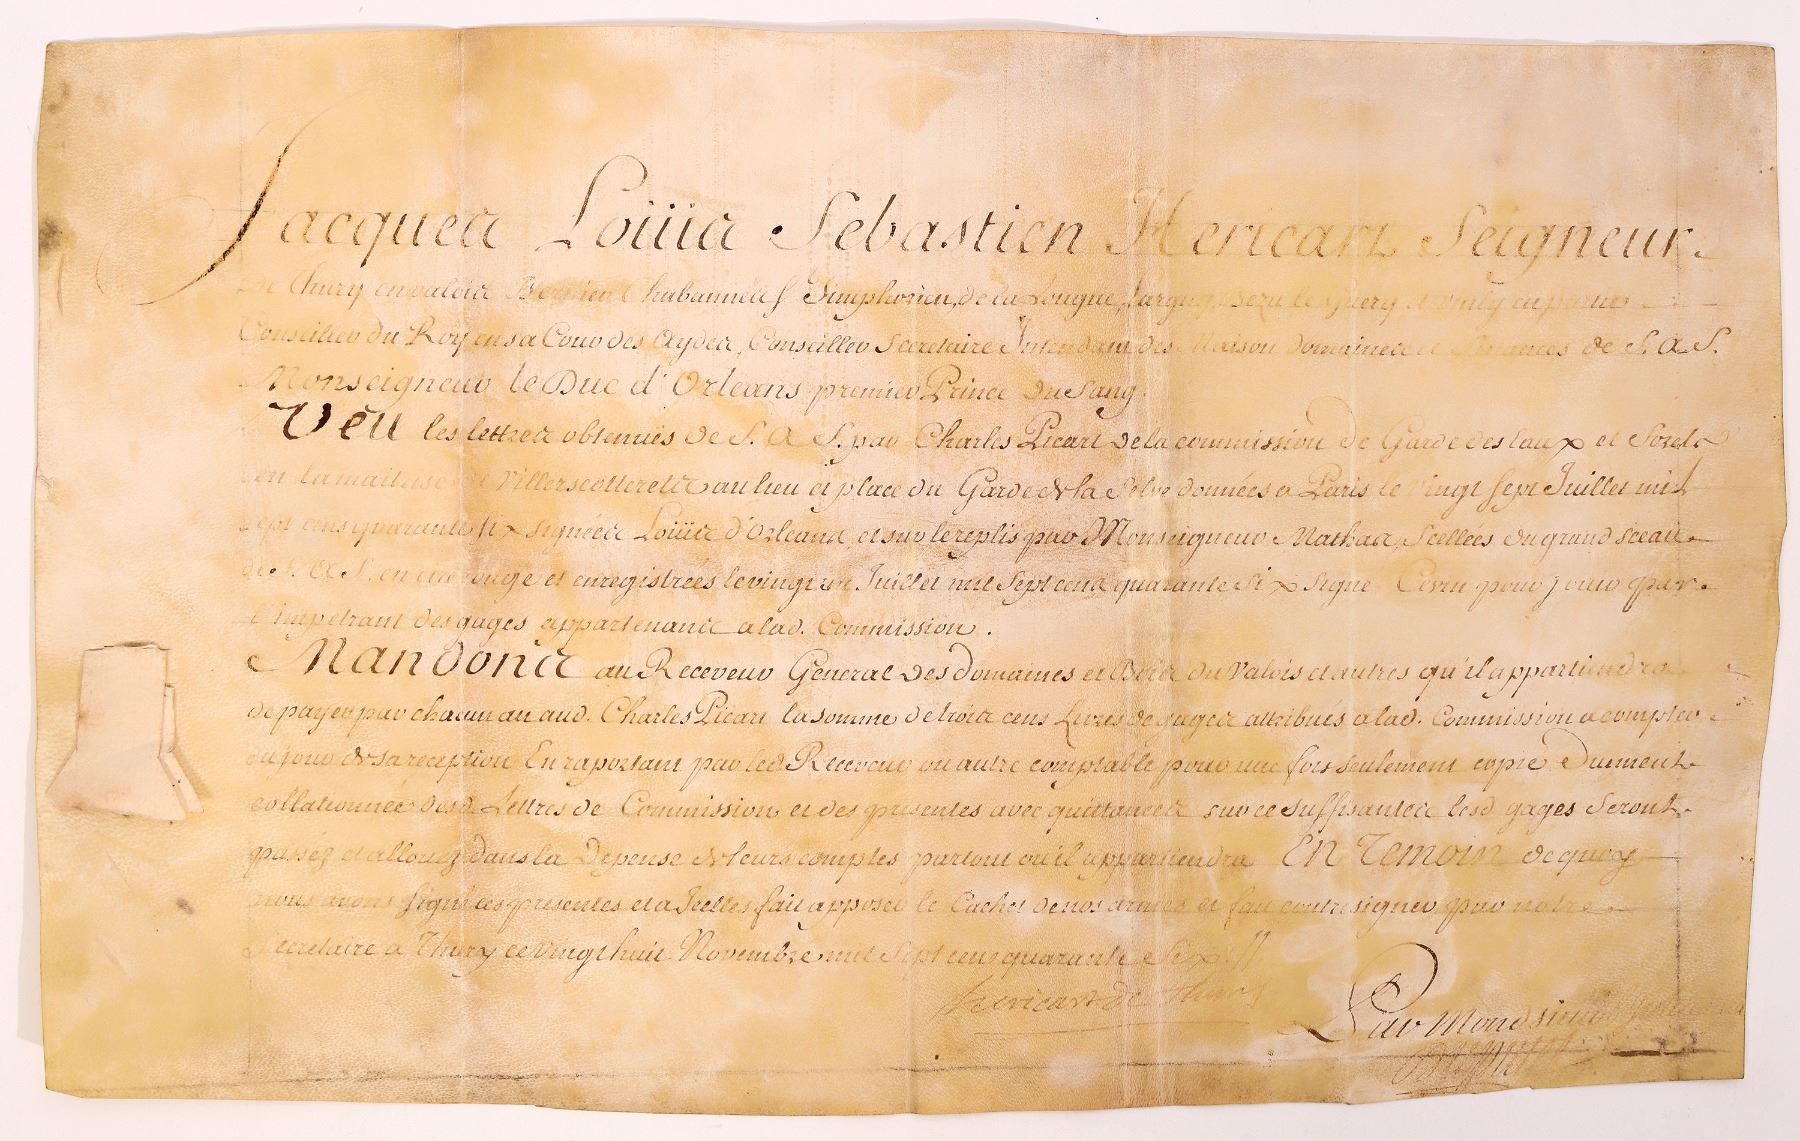 Jacques Loüis Sebastien Hericart Seigneur
Thury en valois Chabannes Simphorien, de la
Conseiller du Roy en sa Cour des Aydes, Conseiller Secretaire Intendant des Maison Domaines et finances de S. A. S.
Monseigneur le Duc d'Orleans premier Prince du Sang.
Veu les lettres obtenuës de S. A. S. par Charles Picart de la commission de Garde des eaux et forets
en la maitrise de Villerscotterets au lieu et place du Garde de la données a Paris le vingt sept Juillet mil
sept cens quarante six signées Loüis d'Orleans et sur le replis par Monseigneur Mathas, Scellées du grand sceau
de S. A. S. en cire rouge et enregistrées le vingt Juillet mil sept cens quarante six signé pour jouir par
l'impetrant des gages appartenans a lad. Commission.
Mandons au Receveur General des domaines et Bois du Valois et autres qu'il appartiendra
de payer par chacun an aud. Charles Picart la somme de trois cens Livres de gages attribués a lad. Commission a compter
du jour de sa reception En raportant par led. Receveur ou autre comptable pour une fois seulement copie Dument
collationnée desd. Lettres de Commission et des presentes avec quittances sur ce suffisantes lesd. gages seront
passéz et allouéz dans la Depense de leurs comptes partout ou il appartiendra En Temoin de quoy
nous avons signé ces presentes et a Icelles fait apposer le Cachet de nos armes et fait contresigner par notre
Secretaire a Thury ce vingt huit Novembre mil sept cens quarante Six //
hericart de Thury
Par Mondsieur